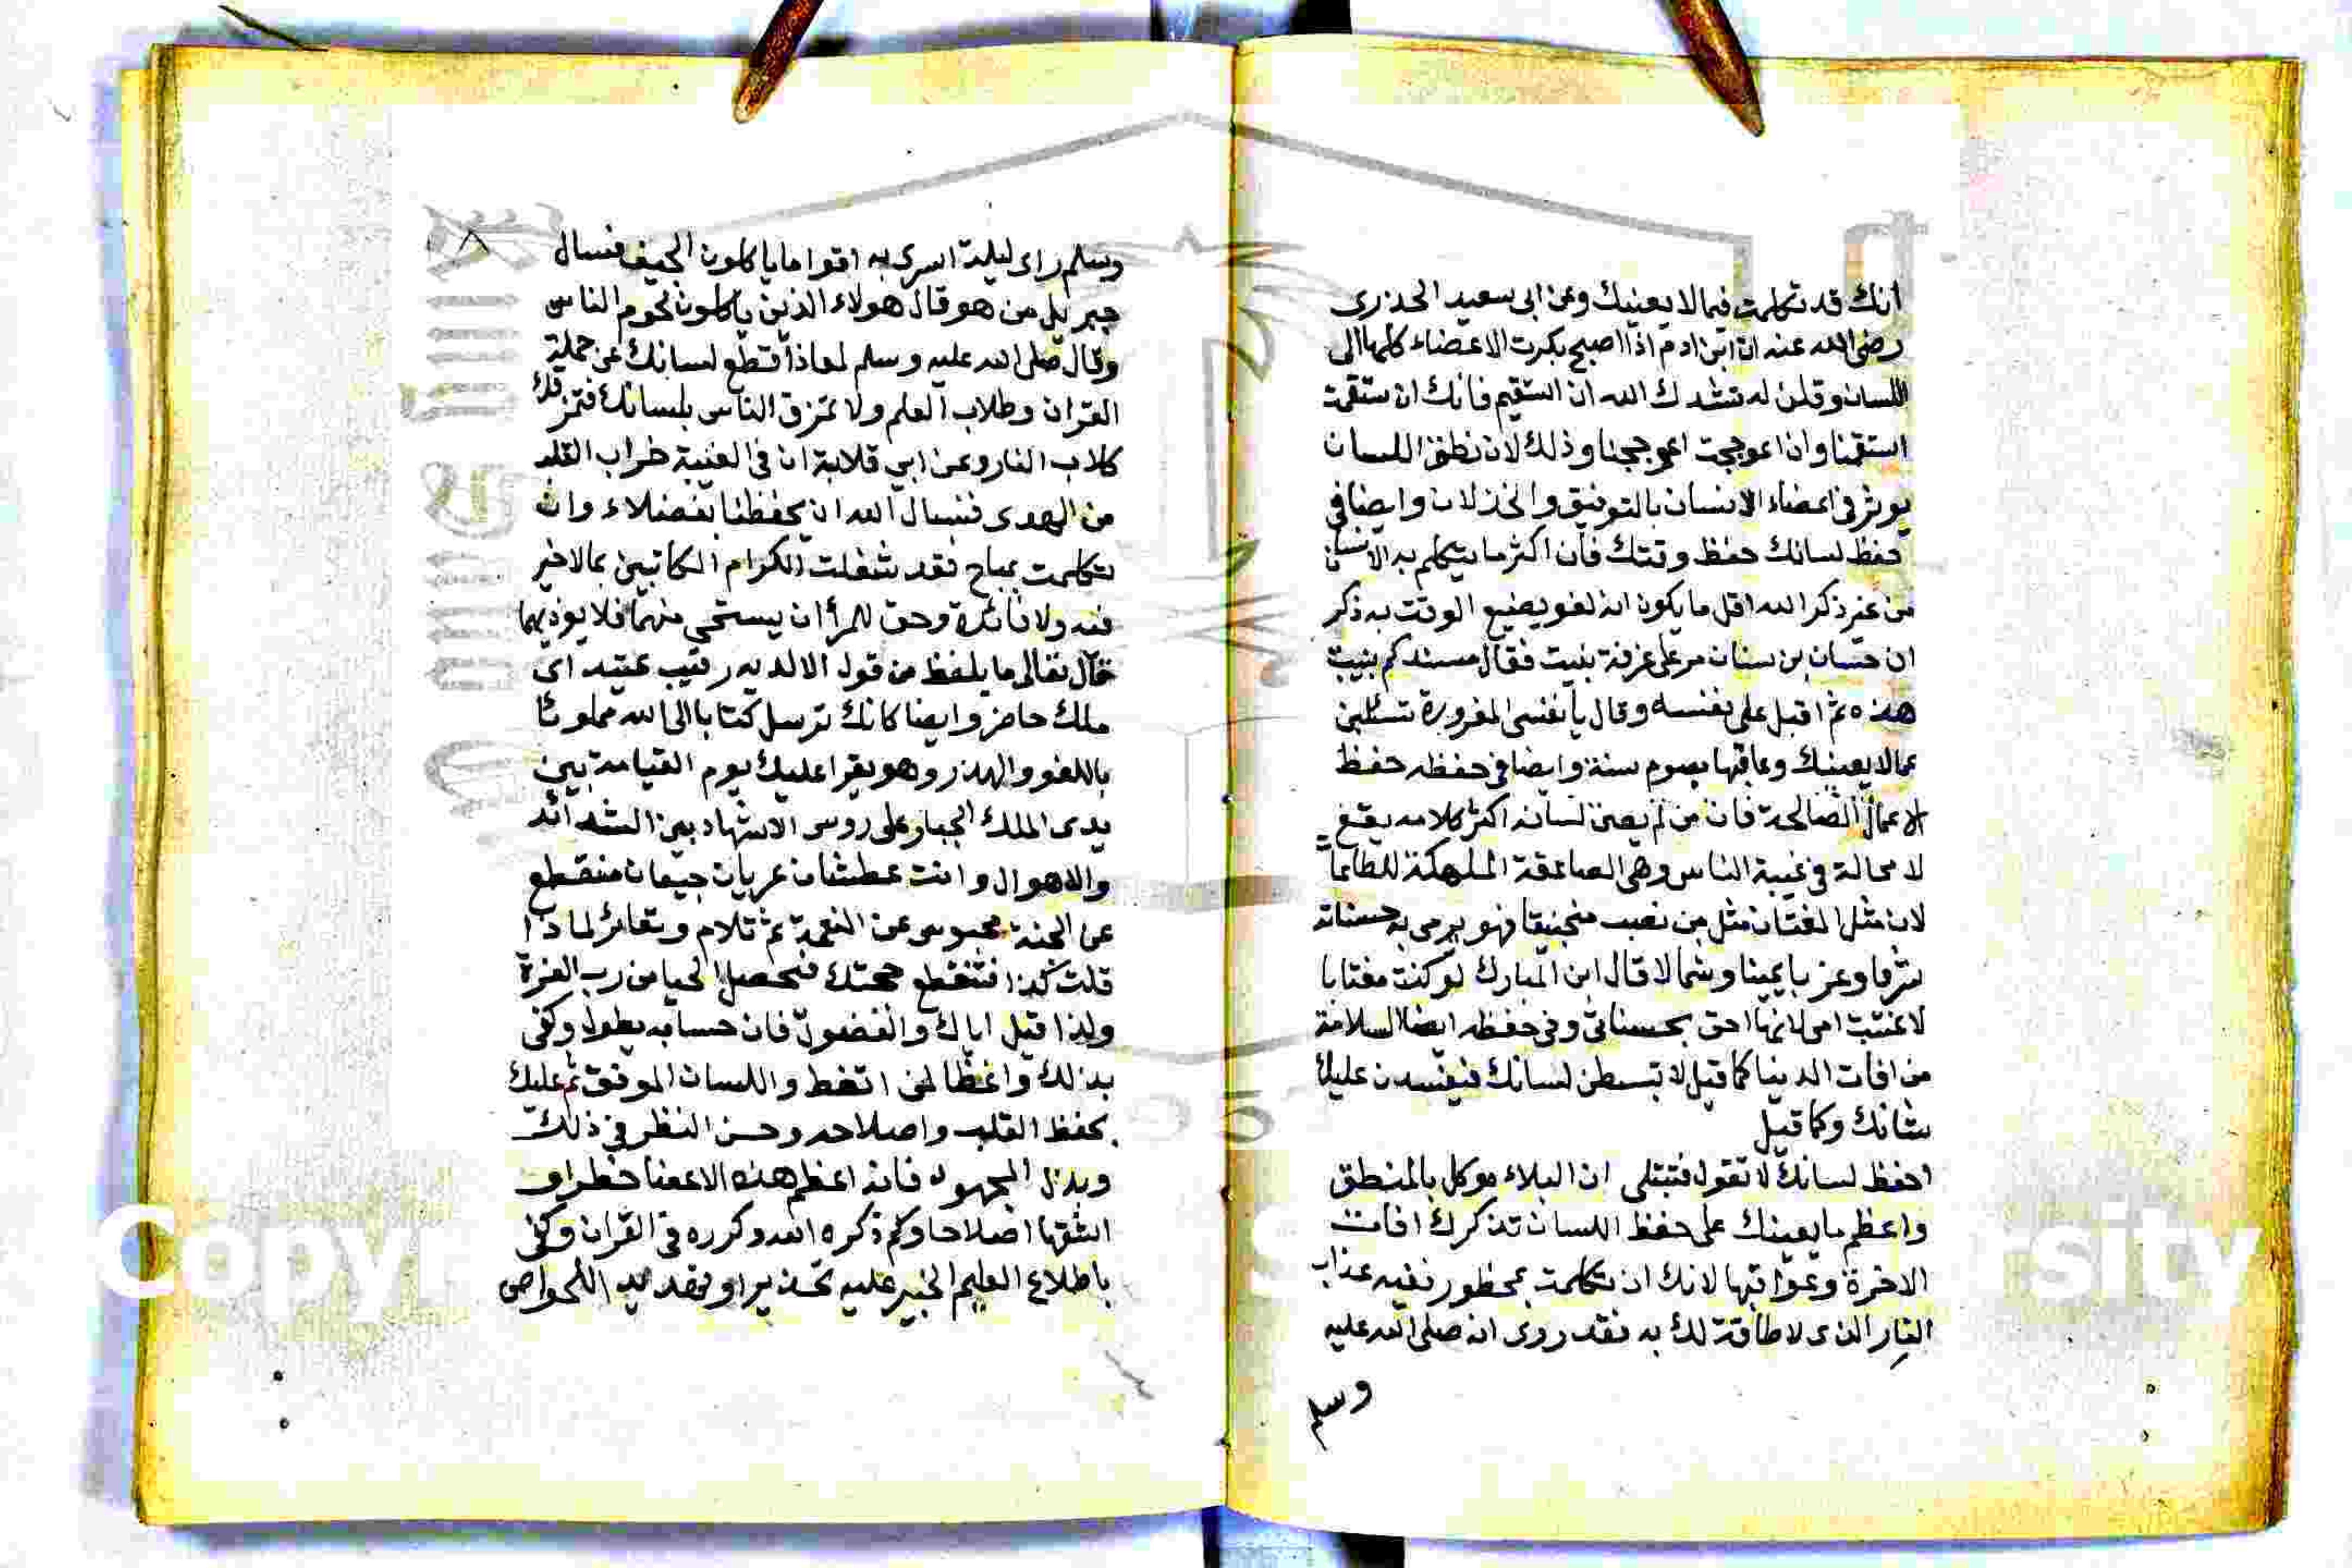 انك قد تكلمت فيما لا يعنيك وعن ابي سعيد الخذري
رضي الله عنه ان ابن ادم اذا اصبح بكرت الاعضاء كلها الى
اللسان وقلن له ننشدك الله ان استقيم فانك ان ستقمت
استقمنا وان اعوججت اعوججنا وذلك لان نطق اللسان
يوثر في اعضاء الانسان بالتوفيق والخذلان وايضا في
حفظ لسانك حفظ وقتك فان اكثر ما يتكلم به الانسان
من غير ذكر الله اقل ما يكون انه لغو يضيع الوقت به ذكر
ان حسان بن سنان مر على غرفة بنيت فقال مسندكم بنيت
هذه ثم اقبل على نفسه وقال يا نفسي المغرورة تسئلين
عما لا يعينك وعاقبها بصوم سنة وايضا في حفظه حفظ
الاعمال الصالحة فان من لم يصن لسانه اكثر كلامه يقع
لا محالة في غيبة الناس وهي الصاعقة المهلكة للطاعات
لان مثل المغتاب مثل من نصب منجنيقا فهو يرمي به حسناته
شرقا وغربا يمينا وشمالا قال ابن المبارك لو كنت مغتابا
لاغتبت امي لانها احق بحسناتي وفي حفظه ايضا السلامة
من افات الدينا كما قيل لا تبسطن لسانك فيفسدن عليك
شانك وكما قيل
احفظ لسانك لا تقول فتبتلى ان البلاء موكل بالمنطق
واعظم ما يعينك على حفظ اللسان تذكرك افات
الاخرة وعواقبها لانك ان تكلمت بمحظور ففيه عذاب
النار الذي لا طاقة لك به فقد روي انه صلى الله عليه
وسلم
وسلم راى ليلة اسرى به اقواما ياكلون الجيف فسال
جبريل من هو قال هولاء الذين ياكلون لحوم الناس
وقال صلى الله عليه وسلم لمعاذ اقطع لسانك عن حملة
القران وطلاب العلم ولا تمزق الناس بلسانك فتمزقك
كلاب النار وعن ابي قلابة ان في الغيبة خراب القلب
من الهدى فنسال الله ان يحفظنا بفضله وان
تكلمت بمباح فقد شغلت الكرام الكاتبين بما لا خير
فيه ولا فائدة وحق للمرأ ان يستحي منهما فلا يوذيهما
قال تعالى ما يلفظ من قول الا لديه رقيب عتيد اي
ملك حاضر وايضا كانك ترسل كتابا الى الله مملوئا
باللغو والهذر وهو يقرا عليك يوم القيامة بين
يدي الملك الجبار على روس الاشهاد بين الشدائد
والاهوال وانت عطشان عريان جيعان منقطع
عن الجنة محبوس عن النعمة ثم تلام وتعاير لما ذا
قلت كذا فتنقطع حجتك فتحصل الحيا من رب العزة
ولذا قيل اياك والفضول فان حسابه يطول وكفى
بذلك واعظا لمن اتعظ واللسان الموفق ثم عليك
بحفظ القلب واصلاحه وحسن النظر في ذلك
وبذل المجهود فانه اعظم هذه الاعضا خطرا و
اشقها اصلاحا وكم ذكره الله وكرره في القران وكفى
باطلاع العليم الخبير عليه تحذيرا وتهديد للخواص